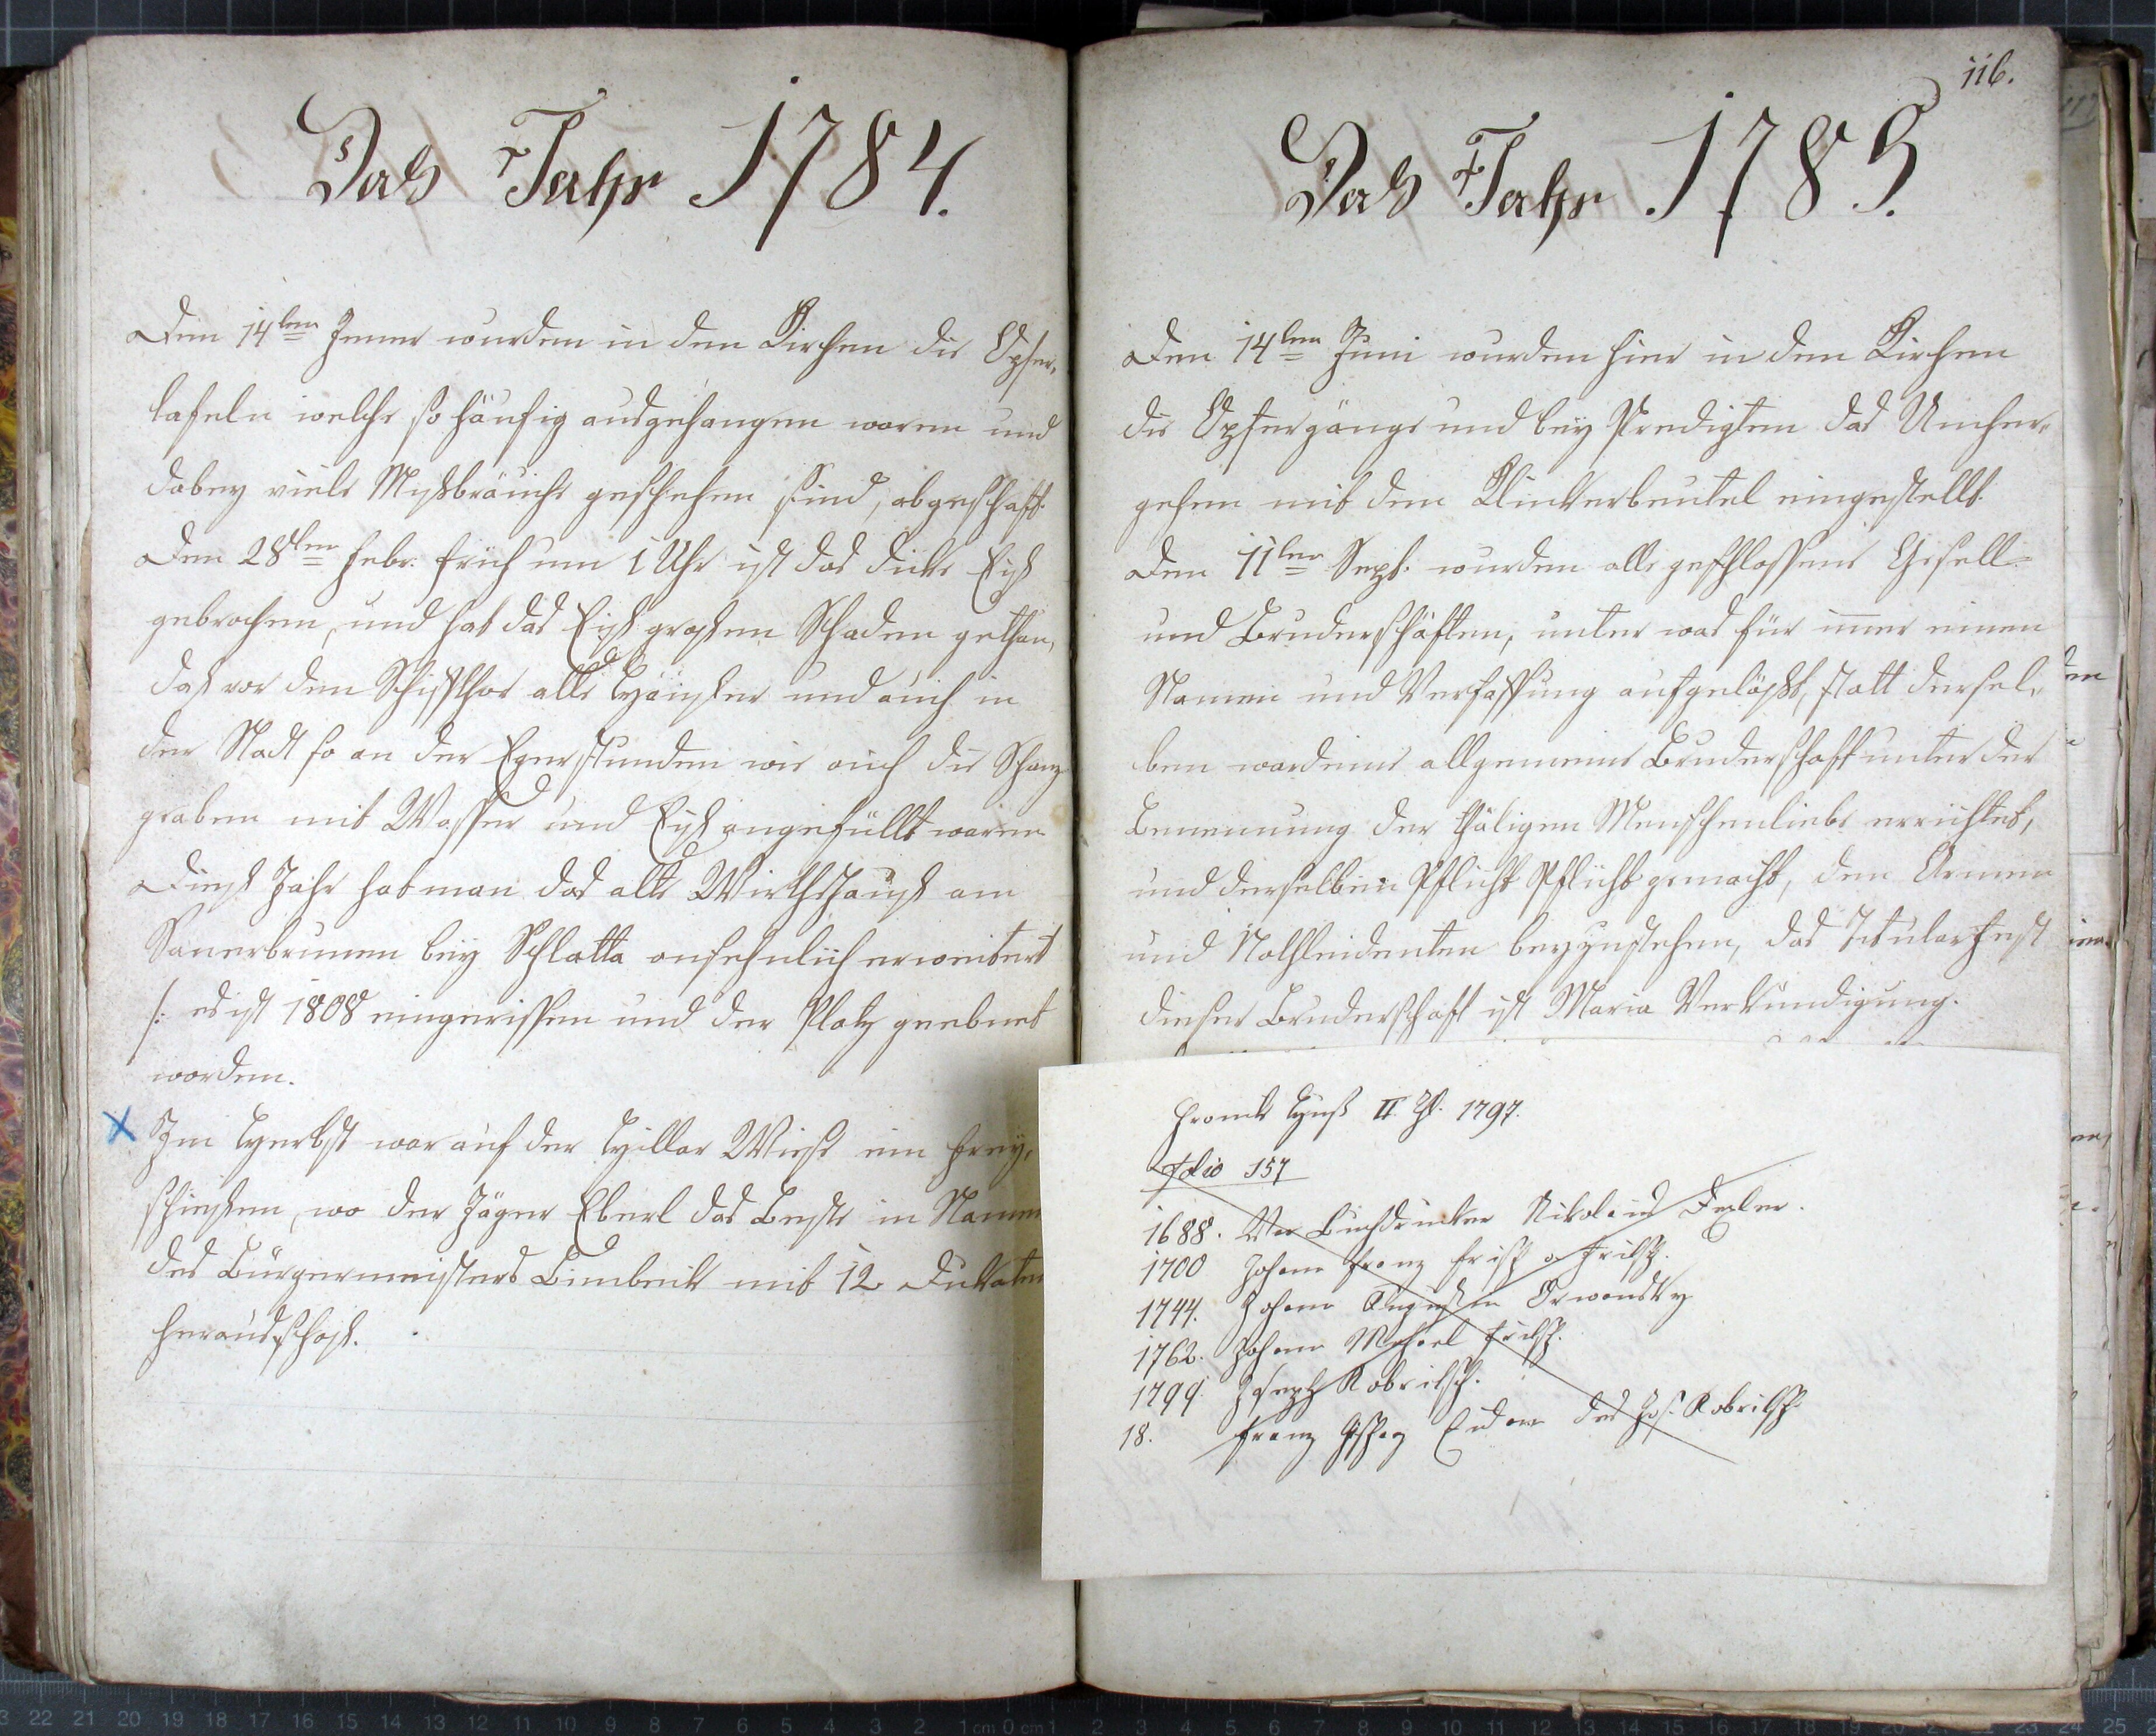 Das Jahr 1784.
Den 14ten Jener wurden in den Kirchen die Opfer-
tafeln welche so häufig ausgehangen waren und
dabey viele Myßbräuche geschehen sind, abgeschaft.
Den 28ten Febr. früh um 1 Uhr ist das dicke Eiß
gebrochen, und hat das Eiß großen Schaden gethan,
daß vor dem Schifthor alle Häußer und auch in
der Stadt so an der Eger stunden wie auch die Schanz
graben mit Wasser und Eiß angefüllt waren
Dieß Jahr hat man das alte Wirthshauß am
Sauerbrunnen bey Schlatta ansehnlich erweitert
/: es ist 1808 eingerissen und der Platz geebnet
worden.
Im Herbst war auf der Hiller Wiese ein Frey-
schießen, wo der Jäger Eberl das Beste in Namen
des Bürgermeisters Limbeck mit 12 Dukaten
herausschoß.
116.
Das Jahr 1785.
Den 14ten Juni wurden hier in den Kirchen
die Opfergänge und bey Predigten das Umher-
gehen mit dem Klinkerbeutel eingestellt.
Den 11ten Sept. wurden alle geschlossene Gesell-
und Bruderschäften, unter was für immer einen
Namen und Verfassung aufgelößt, statt dersel-
ben ward eine allgemeine Bruderschaft unter der
Benennung der thätigen Menschenliebe errichtet,
und derselben Pflicht Pflicht gemacht, den Armen
und Nothleidenten beyzustehen, das Titularfest
dieser Bruderschaft ist Maria Verkündigung.
II. 1797.
folio 157
1688. War Buchdrucker Nikolaus
1700 Johann Franz Frisch o Fritsch.
1744. Johann Augustin Orwansky
1762. Johann Michael Fritsch.
1799. Joseph Kobritsch.
18. Franz Eidam des Jos. Kobritsch